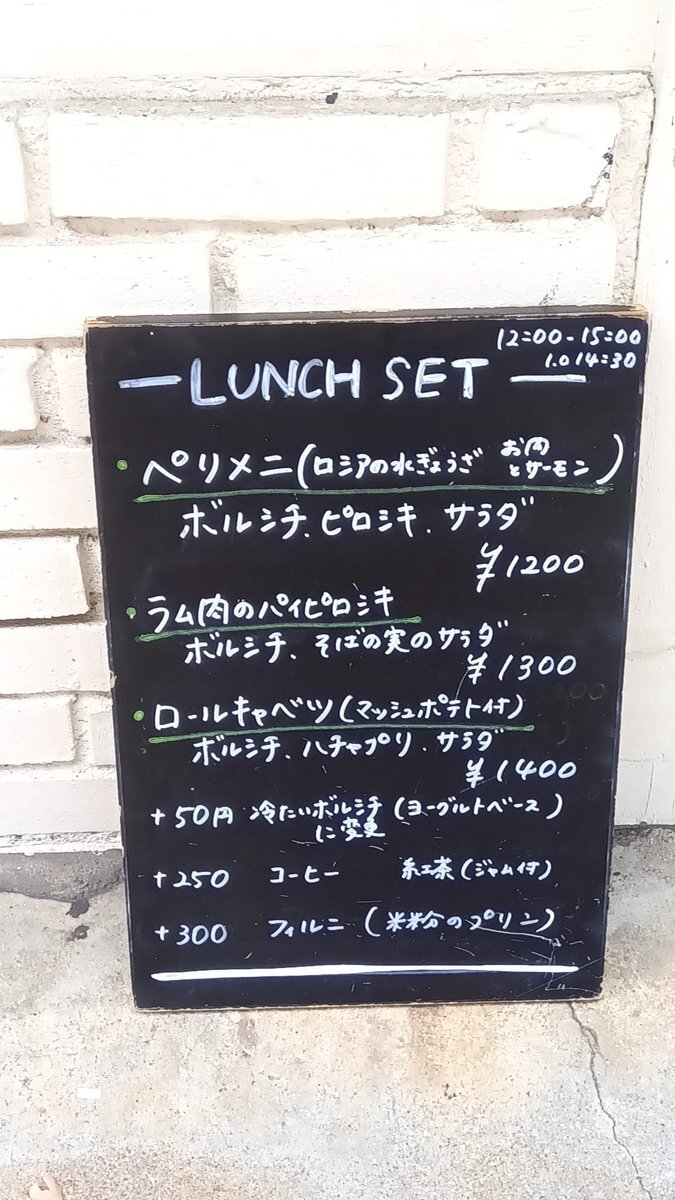 12:00-15:00
L.O 14:30
LUNCH SET
・ペリメニ(ロシアの水ぎょうざ お肉とサーモン)
ボルシチ、ピロシキ、サラダ
¥1200
・ラム肉のパイピロシキ
ボルシチ、そばの実のサラダ
¥1300
・ロールキャベツ(マッシュポテト付)
ボルシチ、ハチャプリ、サラダ
¥1400
+50円 冷たいボルシチ(ヨーグルトベース)
に変更
+250 コーヒー 紅茶(ジャム付)
+300 フィルニ(米粉のプリン)